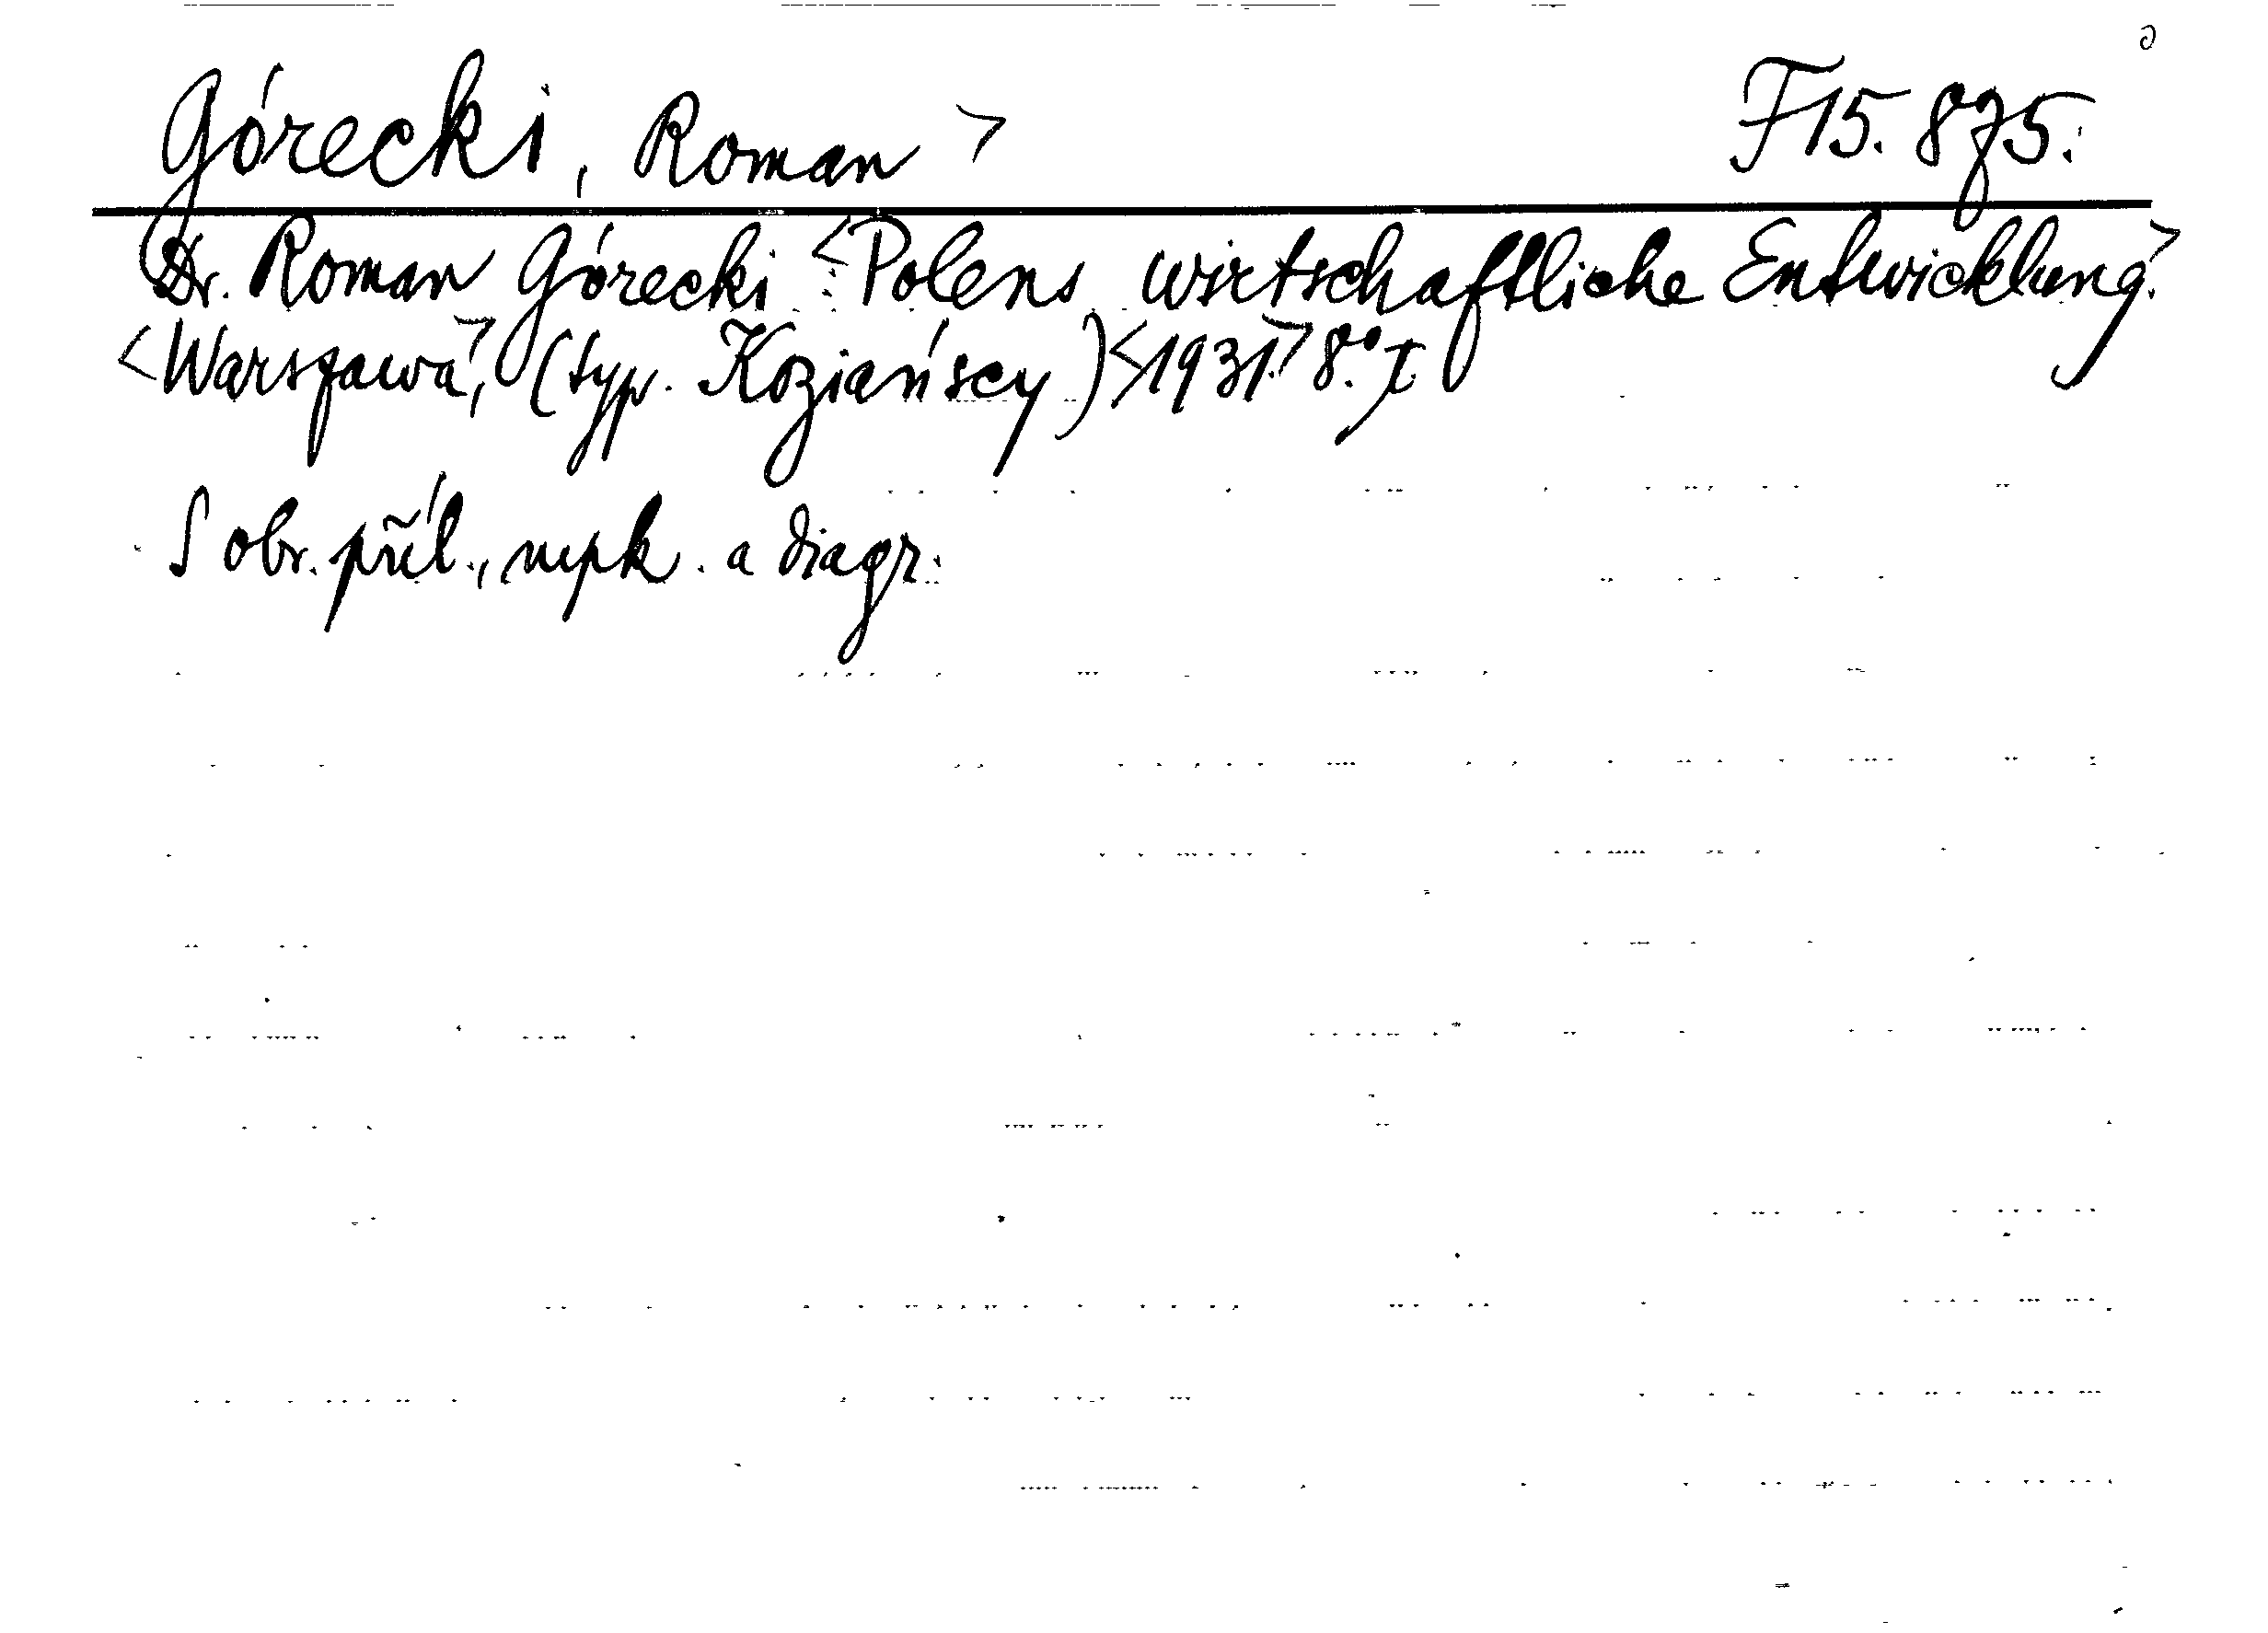 Górecki, Roman > F 15.875.
Dr. Roman Górecki <Polens wirtschaftliche Entwicklung.>
<Warszawa>, (typ. Koziańscy) <1931.> 8.°
S obr. příl., mpk. a diagr.